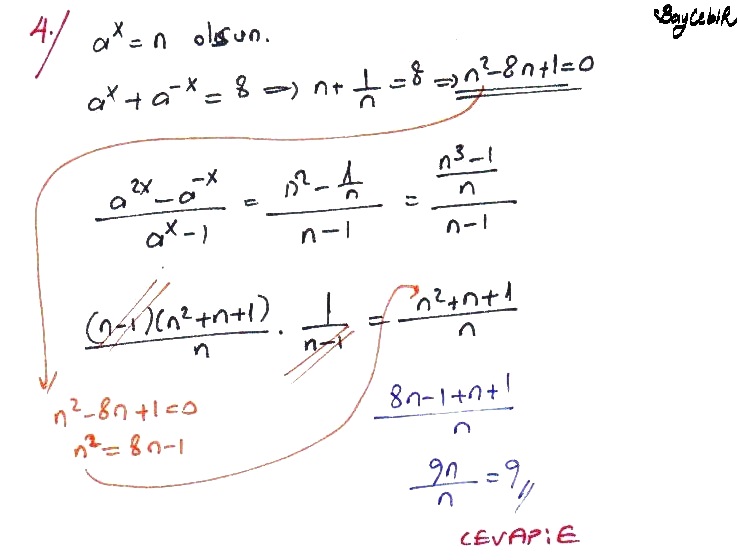 BayCebiR
4./ aˣ = n olsun.
aˣ + a⁻ˣ = 8 ⟹ n + 1/n = 8 ⟹ n² - 8n + 1 = 0
(a²ˣ - a⁻ˣ)/(aˣ - 1) = (n² - 1/n)/(n - 1) = ((n³ - 1)/n)/(n - 1)
((n-1)(n²+n+1))/n · 1/(n-1) = (n²+n+1)/n
n² - 8n + 1 = 0
n² = 8n - 1
(8n - 1 + n + 1)/n
9n/n = 9//
CEVAP: E